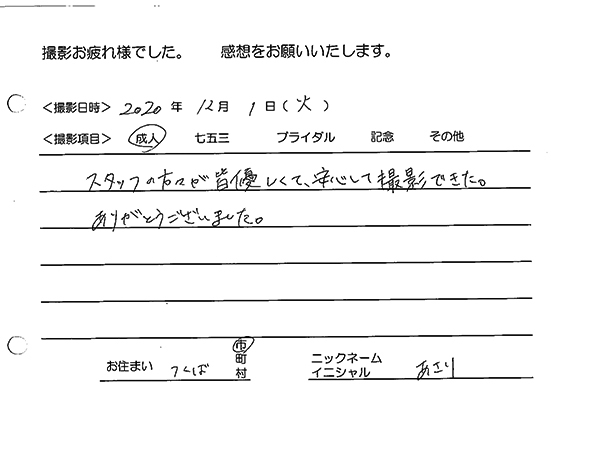 撮影お疲れ様でした。 感想をお願いいたします。
<撮影日時> 2020 年 12月 1日(火)
<撮影項目> 成人 七五三 ブライダル 記念 その他
スタッフの方々が皆優しくて、安心して撮影できた。
ありがとうございました。
お住まい つくば 市 町 村
ニックネーム イニシャル あさり